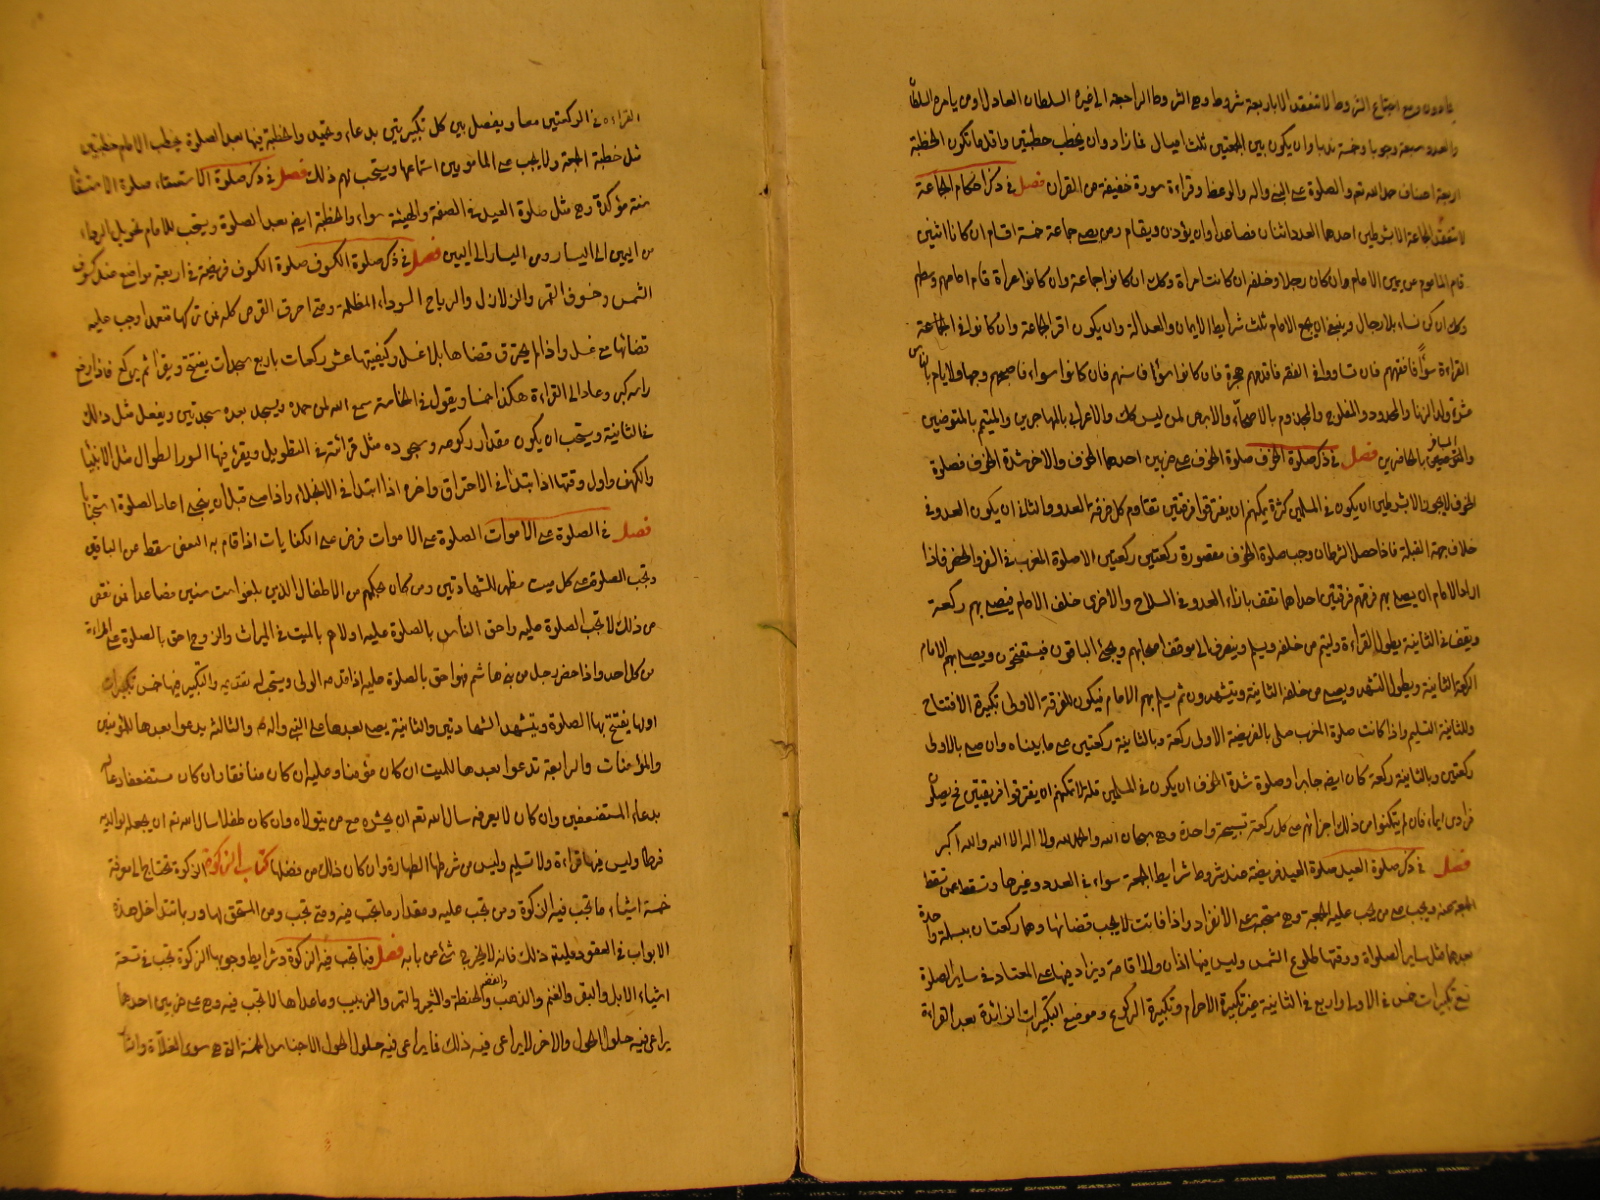 عادون ومع اجتماع الشروط لا تنعقد الا باربعة شروط وهى الشروط الراجعة الى غيره السلطان العادل او من يامره السلطان
والعدد سبعة وجوبا وخمسة ندبا وان يكون بين الجمعتين ثلث اميال فما زاد وان يخطب خطبتين واقل ما تكون الخطبة
اربعة اصناف حمد الله تعم والصلوة على النبى واله والوعظ وقراءة سورة خفيفة من القران فصل فى ذكر احكام الجماعة
لا تنعقد الجماعة الا بشرطين احدهما العدد اثنان فصاعدا وان يؤذن ويقام ومن يصلى جماعة خمسة اقسام ان كانا اثنين
قام الماموم عن يمين الامام وان كان رجلا وخلفه ان كانت امراة وكك ان كانوا جماعة وان كانوا عراة قام امامهم وسطهم
وكك ان كن نساء بلا رجال وينبغى ان يجمع الامام ثلث شرايط الايمان والعدالة وان يكون اقرا الجماعة وان كانوا فى الجماعة
القراءة سواء فافقههم فان تساووا فى الفقه فاقدمهم هجرة فان كانوا سواء فاسنهم فان كانوا سواء فاصبحهم وجها ولا يام بالناس
عشرة ولد الزنا والمحدود والمفلوج والمجذوم بالاصحاء والابرص لمن ليس كك والاعرابى بالمهاجرين والمتيمم بالمتوضين
والمسافر بالحاضرين فصل فى ذكر صلوة الخوف صلوة الخوف على ضربين احدهما الخوف والاخر شدة الخوف فصلوة
الخوف لا يجوز الا بشرطين ان يكون فى المسلمين كثرة يمكنهم ان يفترقوا فرقتين تقاوم كل فرقة العدو والثانى ان يكون العدو فى
خلاف جهة القبلة فاذا حصل الشرطان وجب صلوة الخوف مقصورة ركعتين ركعتين الا صلوة المغرب فى السفر والحضر فاذا
اراد الامام ان يصلى بهم فرقهم فرقتين احداها تقف بازاء العدو فى السلاح والاخرى خلف الامام فيصلى بهم ركعة
ويقف فى الثانية يطول القراءة وليتم من خلفه ويسلم وينصرف الى موقف اصحابهم ويجئ الباقون فيستفتحون ويصلى بهم الامام
الركعة الثانية ويطول التشهد ويصلى من خلفه الثانية ويتشهدون ثم يسلم بهم الامام فيكون للفرقة الاولى تكبيرة الافتتاح
وللثانية التسليم واذا كانت صلوة المغرب صلى بالفريضة الاولى ركعة وبالثانية ركعتين على ما بيناه وان صلى بالاولى
ركعتين وبالثانية ركعة كان ايضه جايزا وصلوة شدة الخوف ان يكون فى المسلمين قلة لا تمكنهم ان يفترقوا فريقتين فح يصلون
فرادى ايماء فان لم يتمكنوا من ذلك اجزائهم عن كل ركعة تسبيحة واحدة وهى سبحان الله والحمد لله ولا اله الا الله والله اكبر
فصل فى ذكر صلوة العيد صلوة العيد فريضة عند شروط شرايط الجمعة سواء فى العدد وغيرها وتسقط عمن تسقط
الجمعة عنه ويجب على من يجب عليه الجمعة وهى مستحبة على الانفراد واذا فاتت لا يجب قضائها وهما ركعتان بتسليمة واحدة
بعدهما مثل ساير الصلواة ووقتها طلوع الشمس وليس فيها اذان ولا اقامة ويزاد فيها على المعتاد فى ساير الصلوة
تسع تكبيرات خمس فى الاولى واربع فى الثانية غير تكبيرة الاحرام وتكبيرة الركوع وموضع التكبيرات الزائدة بعد القراءة
القراءة فى الركعتين معا ويفصل بين كل تكبيرتين بدعاء وتحميد والخطبة فيها بعد الصلوة يخطب الامام خطبتين
مثل خطبة الجمعة ولا يجب على المامومين استماعها ويستحب لهم ذلك فصل فى ذكر صلوة الاستسقاء صلوة الاستسقاء
سنة مؤكدة وهى مثل صلوة العيد فى الصفة والهيئة سواء والخطبة ايضه بعد الصلوة ويستحب للامام تحويل الرداء
من اليمين الى اليسار ومن اليسار الى اليمين فصل فى ذكر صلوة الكسوف صلوة الكسوف فريضة فى اربعة مواضع عند كسوف
الشمس وخسوف القمر والزلازل والرياح السوداء المظلمة ومتى احرق القرص كله فمن تركها متعمدا وجب عليه
قضائها مع غسل واذا لم يحترق قضاها بلا غسل وكيفيتها عشر ركعات باربع سجدات يفتتح ويقرا ثم يركع فاذا رفع
راسه كبر وعاد الى القراءة هكذا خمسا ويقول فى الخامسة سمع الله لمن حمده ويسجد بعده سجدتين ويفعل مثل ذلك
فى الثانية ويستحب ان يكون مقدار ركوعه وسجوده مثل قرائته فى التطويل ويقرء فيها السور الطوال مثل الانبياء
والكهف واول وقتها اذا ابتدا فى الاحتراق واخره اذا ابتدا فى الانجلاء واذا صلى قبل ان ينجلى اعاد الصلوة استحبابا
فصل فى الصلوة على الاموات الصلوة على الاموات فرض على الكفايات اذا قام به البعض سقط عن الباقين
وتجب الصلوة على كل ميت مظهر للشهادتين ومن كان بحكمهم من الاطفال الذين بلغوا ست سنين فصاعدا فمن نقص
من ذلك لا تجب الصلوة عليه واحق الناس بالصلوة عليه اولاهم بالميت فى الميراث والزوج احق بالصلوة على المراة
من كل احد واذا حضر رجل من بنى هاشم فهو احق بالصلوة عليه اذا قدمه الولى ويستحب له تقديمه والتكبير فيها خمس تكبيرات
اولها يفتتح بها الصلوة ويتشهد الشهادتين والثانية يصلى بعدها على النبى واله م والثالثة يدعوا بعدها للمؤمنين
والمؤمنات والرابعة تدعوا بعدها للميت ان كان مؤمنا وعليه ان كان منافقا وان كان مستضعفا دعا
بدعاء المستضعفين وان كان لا يعرفه سال الله تعم ان يحشره مع من يتولاه وان كان طفلا سال الله تم ان يجعله لوالديه
فرطا وليس فيها قراءة ولا تسليم وليس من شرطها الطهارة وان كان ذلك من فضلها كتاب الزكوة الزكوة تحتاج الى معرفة
خمسة اشياء ما تجب فيه الزكوة ومن تجب عليه ومقدار ما تجب فيه ومتى تجب ومن المستحق لها وربما تتداخل هذه
الابواب فى العقود فليتم ذلك فانه لا يخرج شئ من بابه فصل فيما تجب فيه الزكوة وشرايط وجوبها الزكوة تجب فى تسعة
اشياء الابل والبقر والغنم والذهب والفضة والحنطة والشعير والتمر والزبيب وما عداها لا تجب فيه وهى على ضربين احدهما
يراعى فيه حلول الحول والاخر لا يراعى فيه ذلك فما يراعى فيه حلول الحول الاجناس الخمسة التى هى سوى الغلاة والثمار